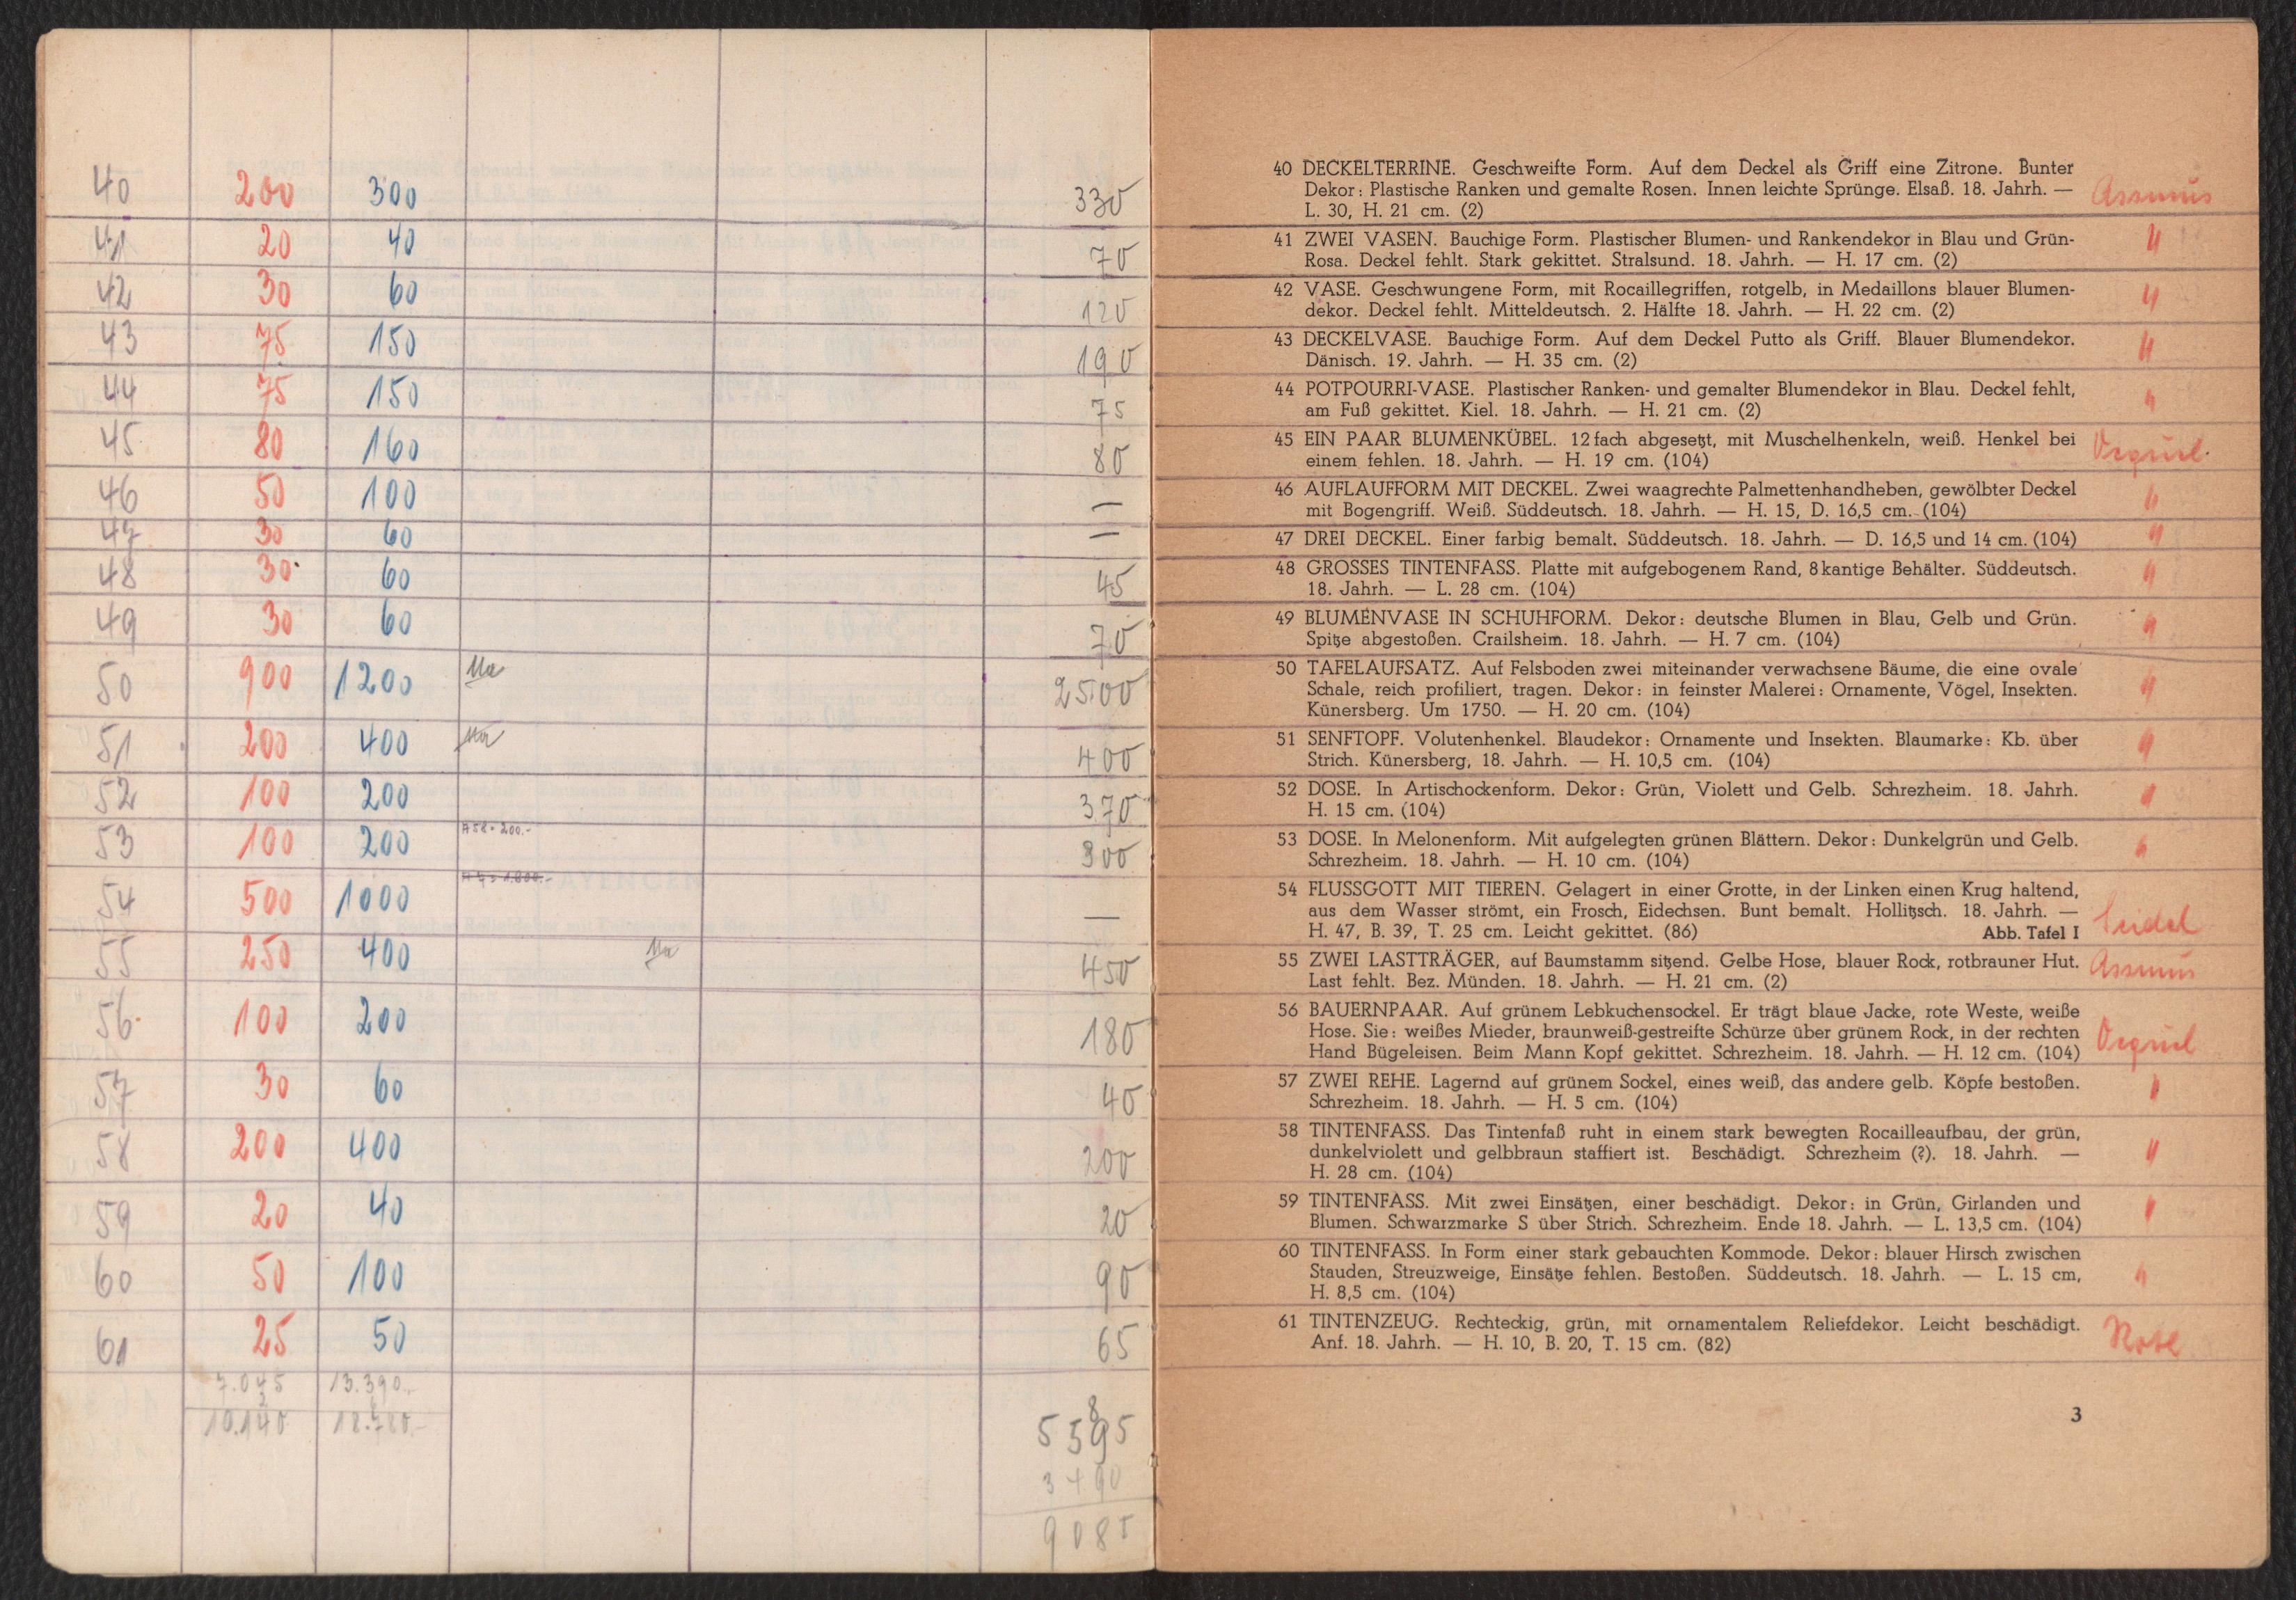 40 200 300 330
41 20 40 70
42 30 60 120
43 75 150 190
44 75 150 75
45 80 160 80
46 50 100 —
47 30 60 —
48 30 60 45
49 30 60 70
50 900 1200 2500
51 200 400 400
52 100 200 370
53 100 200 A 58 = 200.- 300
54 500 1000 —
55 250 400 450
56 100 200 180
57 30 60 40
58 200 400 200
59 20 40 20
60 50 100 90
61 25 50 65
7.045 13.390.-
10.140
9085
40 DECKELTERRINE. Geschweifte Form. Auf dem Deckel als Griff eine Zitrone. Bunter
Dekor: Plastische Ranken und gemalte Rosen. Innen leichte Sprünge. Elsaß. 18. Jahrh. — Assmus
L. 30, H. 21 cm. (2)
41 ZWEI VASEN. Bauchige Form. Plastischer Blumen- und Rankendekor in Blau und Grün- "
Rosa. Deckel fehlt. Stark gekittet. Stralsund. 18. Jahrh. — H. 17 cm. (2)
42 VASE. Geschwungene Form, mit Rocaillegriffen, rotgelb, in Medaillons blauer Blumen- "
dekor. Deckel fehlt. Mitteldeutsch. 2. Hälfte 18. Jahrh. — H. 22 cm. (2)
43 DECKELVASE. Bauchige Form. Auf dem Deckel Putto als Griff. Blauer Blumendekor. "
Dänisch. 19. Jahrh. — H. 35 cm. (2)
44 POTPOURRI-VASE. Plastischer Ranken- und gemalter Blumendekor in Blau. Deckel fehlt, "
am Fuß gekittet. Kiel. 18. Jahrh. — H. 21 cm. (2)
45 EIN PAAR BLUMENKÜBEL. 12fach abgesetzt, mit Muschelhenkeln, weiß. Henkel bei
einem fehlen. 18. Jahrh. — H. 19 cm. (104)
46 AUFLAUFFORM MIT DECKEL. Zwei waagrechte Palmettenhandheben, gewölbter Deckel "
mit Bogengriff. Weiß. Süddeutsch. 18. Jahrh. — H. 15, D. 16,5 cm. (104)
47 DREI DECKEL. Einer farbig bemalt. Süddeutsch. 18. Jahrh. — D. 16,5 und 14 cm. (104) "
48 GROSSES TINTENFASS. Platte mit aufgebogenem Rand, 8kantige Behälter. Süddeutsch. "
18. Jahrh. — L. 28 cm. (104)
49 BLUMENVASE IN SCHUHFORM. Dekor: deutsche Blumen in Blau, Gelb und Grün. "
Spitze abgestoßen. Crailsheim. 18. Jahrh. — H. 7 cm. (104)
50 TAFELAUFSATZ. Auf Felsboden zwei miteinander verwachsene Bäume, die eine ovale
Schale, reich profiliert, tragen. Dekor: in feinster Malerei: Ornamente, Vögel, Insekten. "
Künersberg. Um 1750. — H. 20 cm. (104)
51 SENFTOPF. Volutenhenkel. Blaudekor: Ornamente und Insekten. Blaumarke: Kb. über "
Strich. Künersberg, 18. Jahrh. — H. 10,5 cm. (104)
52 DOSE. In Artischockenform. Dekor: Grün, Violett und Gelb. Schrezheim. 18. Jahrh. "
H. 15 cm. (104)
53 DOSE. In Melonenform. Mit aufgelegten grünen Blättern. Dekor: Dunkelgrün und Gelb. "
Schrezheim. 18. Jahrh. — H. 10 cm. (104)
54 FLUSSGOTT MIT TIEREN. Gelagert in einer Grotte, in der Linken einen Krug haltend,
aus dem Wasser strömt, ein Frosch, Eidechsen. Bunt bemalt. Hollitzsch. 18. Jahrh. — Seidel
H. 47, B. 39, T. 25 cm. Leicht gekittet. (86) Abb. Tafel I
55 ZWEI LASTTRÄGER, auf Baumstamm sitzend. Gelbe Hose, blauer Rock, rotbrauner Hut. Assmus
Last fehlt. Bez. Münden. 18. Jahrh. — H. 21 cm. (2)
56 BAUERNPAAR. Auf grünem Lebkuchensockel. Er trägt blaue Jacke, rote Weste, weiße
Hose. Sie: weißes Mieder, braunweiß-gestreifte Schürze über grünem Rock, in der rechten
Hand Bügeleisen. Beim Mann Kopf gekittet. Schrezheim. 18. Jahrh. — H. 12 cm. (104)
57 ZWEI REHE. Lagernd auf grünem Sockel, eines weiß, das andere gelb. Köpfe bestoßen. "
Schrezheim. 18. Jahrh. — H. 5 cm. (104)
58 TINTENFASS. Das Tintenfaß ruht in einem stark bewegten Rocailleaufbau, der grün,
dunkelviolett und gelbbraun staffiert ist. Beschädigt. Schrezheim (?). 18. Jahrh. — "
H. 28 cm. (104)
59 TINTENFASS. Mit zwei Einsätzen, einer beschädigt. Dekor: in Grün, Girlanden und "
Blumen. Schwarzmarke S über Strich. Schrezheim. Ende 18. Jahrh. — L. 13,5 cm. (104)
60 TINTENFASS. In Form einer stark gebauchten Kommode. Dekor: blauer Hirsch zwischen
Stauden, Streuzweige, Einsätze fehlen. Bestoßen. Süddeutsch. 18. Jahrh. — L. 15 cm, "
H. 8,5 cm. (104)
61 TINTENZEUG. Rechteckig, grün, mit ornamentalem Reliefdekor. Leicht beschädigt.
Anf. 18. Jahrh. — H. 10, B. 20, T. 15 cm. (82)
3